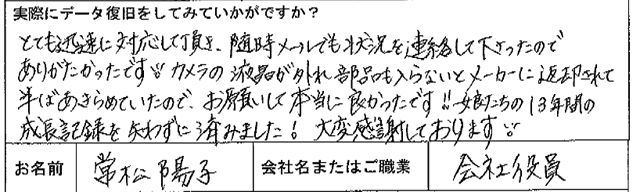 実際にデータ復旧をしてみていかがですか？
とても迅速に対応して頂き、随時メールでも状況を連絡して下さったので
ありがたかったです!! カメラの液晶が外れ部品も入らないとメーカーに返却されて
半ばあきらめていたので、お願いして本当に良かったです!! 娘たちの13年間の
成長記録を失わずに済みました! 大変感謝しております!!
お名前 常松陽子 会社名またはご職業 会社役員